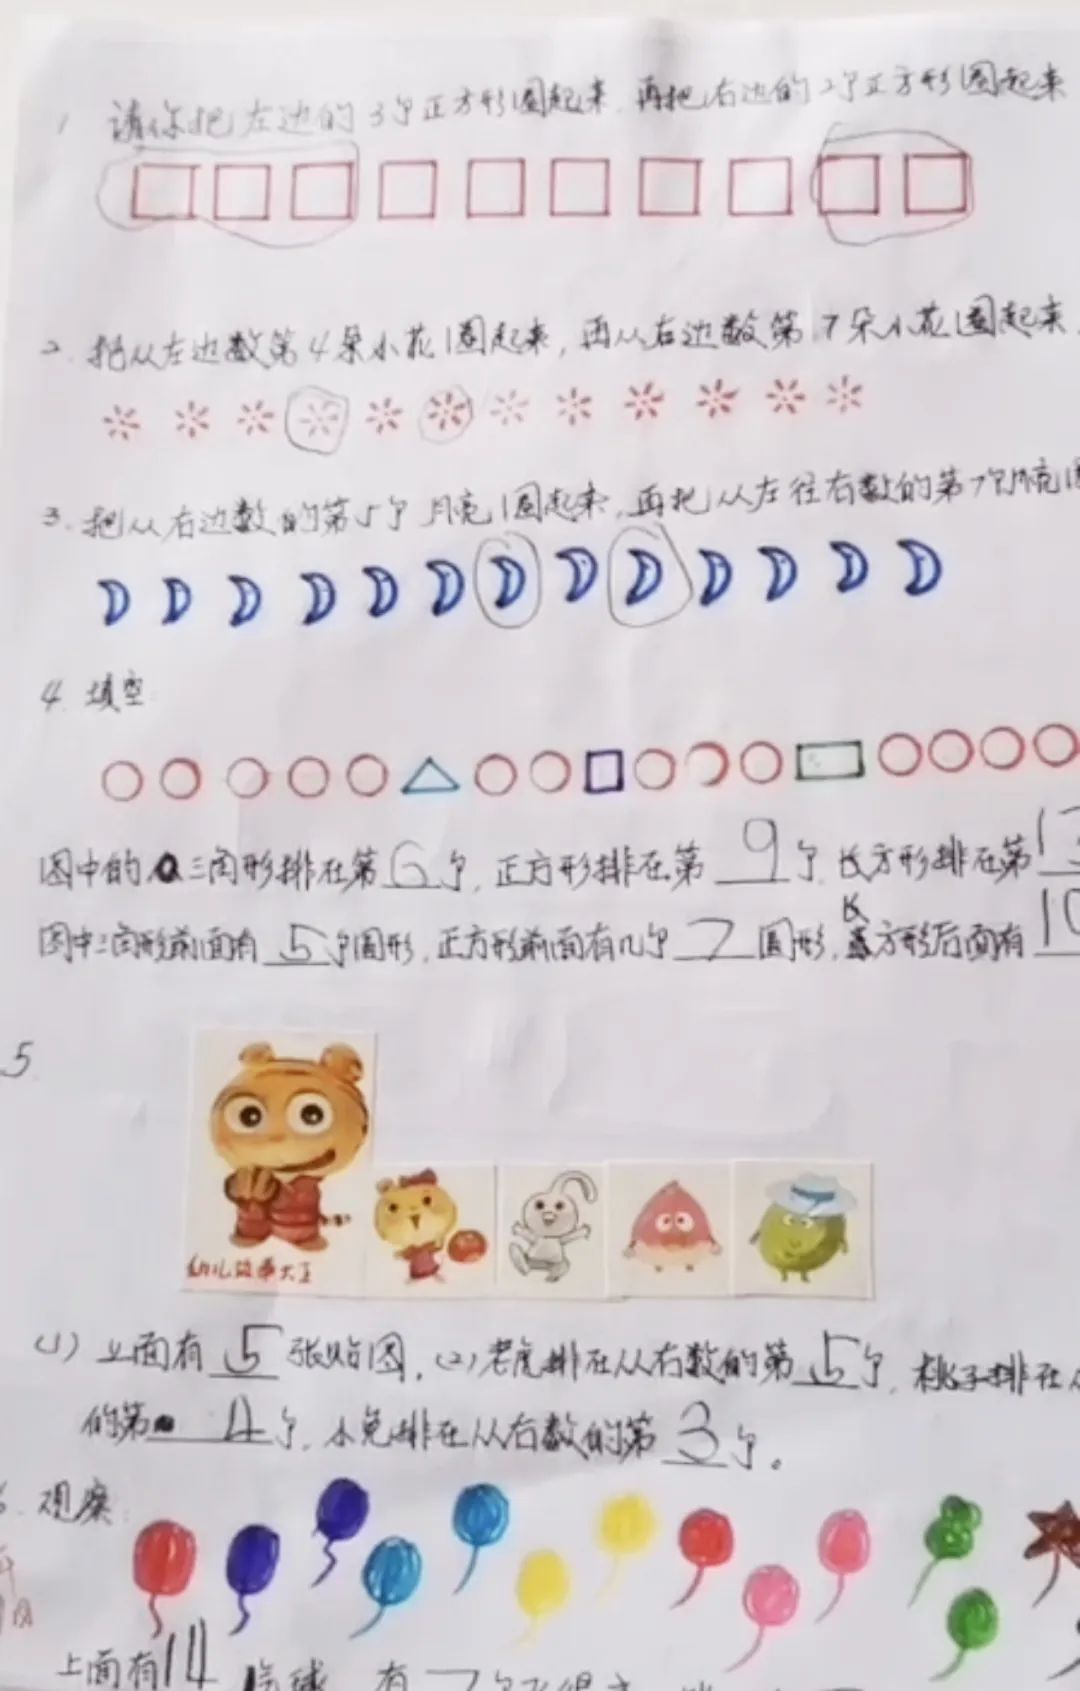 1 请你把左边的3个正方形圈起来.再把右边的2个正方形圈起来
2.把从左边数第4朵小花圈起来,再从右边数第7朵小花圈起来
3.把从右边数的第5个月亮圈起来,再把从左往右数的第7个月亮圈
4.填空:
图中的三角形排在第6个,正方形排在第9个.长方形排在第13
图中三角形前面有5个圆形.正方形前面有几个7圆形,长方形后面有10
5.
幼儿故事大王
(1)上面有5张贴图.(2)老虎排在从右数的第5个,桃子排在从
的第4个,小兔排在从右数的第3个。
6.观察:
上面有14气球